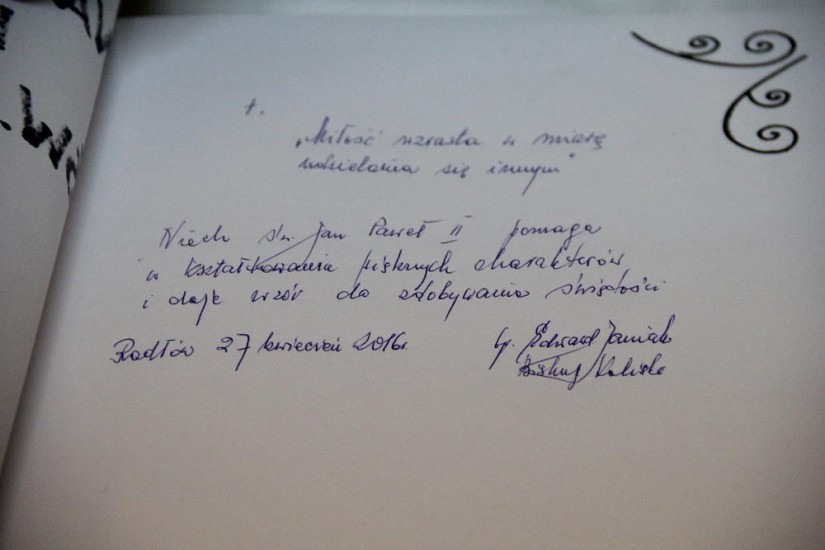 +.
„Miłość wzrasta w miarę
udzielania się innym"
Niech św. Jan Paweł II pomaga
w kształtowaniu pięknych charakterów
i daje wzór do zdobywania świętości
Radłów 27 kwiecień 2016r.
bp. Edward Janiak
Biskup Kaliski